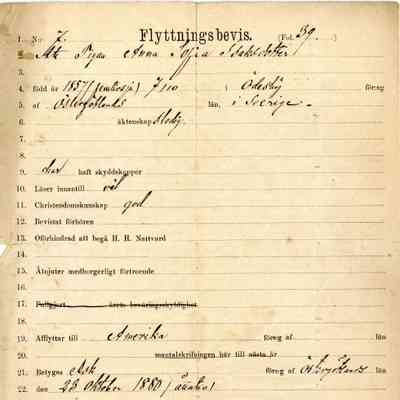 1. No 7. Flyttningsbevis. (Fol. 39.)
2. Att Pigan Anna Sofia Isaksdotter
3.
4. född år 1857 7/10 i Ödeby förs:g
5. af län, i Sverige.
6. äktenskap ledig.
7.
8.
9. har haft skyddskoppor
10. Läser innantill väl
11. Christendomskunskap god
12. Bevistat förhören
13. Oförhindrad att begå H. H. Nattvard
14.
15. Åtnjuter medborgerligt förtroende
16.
17. Fullgjort årets beväringsskyldighet
18.
19. Afflyttar till Amerika förs:g af län
20. mantalskrifningen här till nästa år
21. Betygas Ask förs:g af län
22. den 23 Oktober 1880